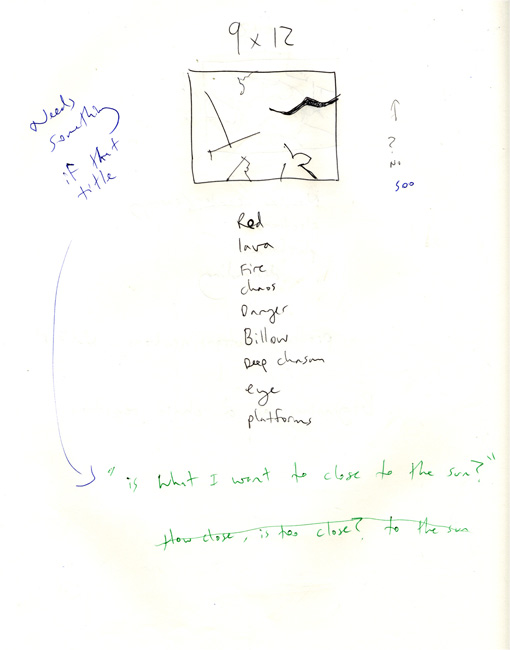 9 x 12
Needs
something
if that
title
↑
?
No
500
Red
lava
Fire
chaos
Danger
Billow
Deep chasam
eye
platforms
"is what I want to close to the sun?"
How close, is too close? to the sun